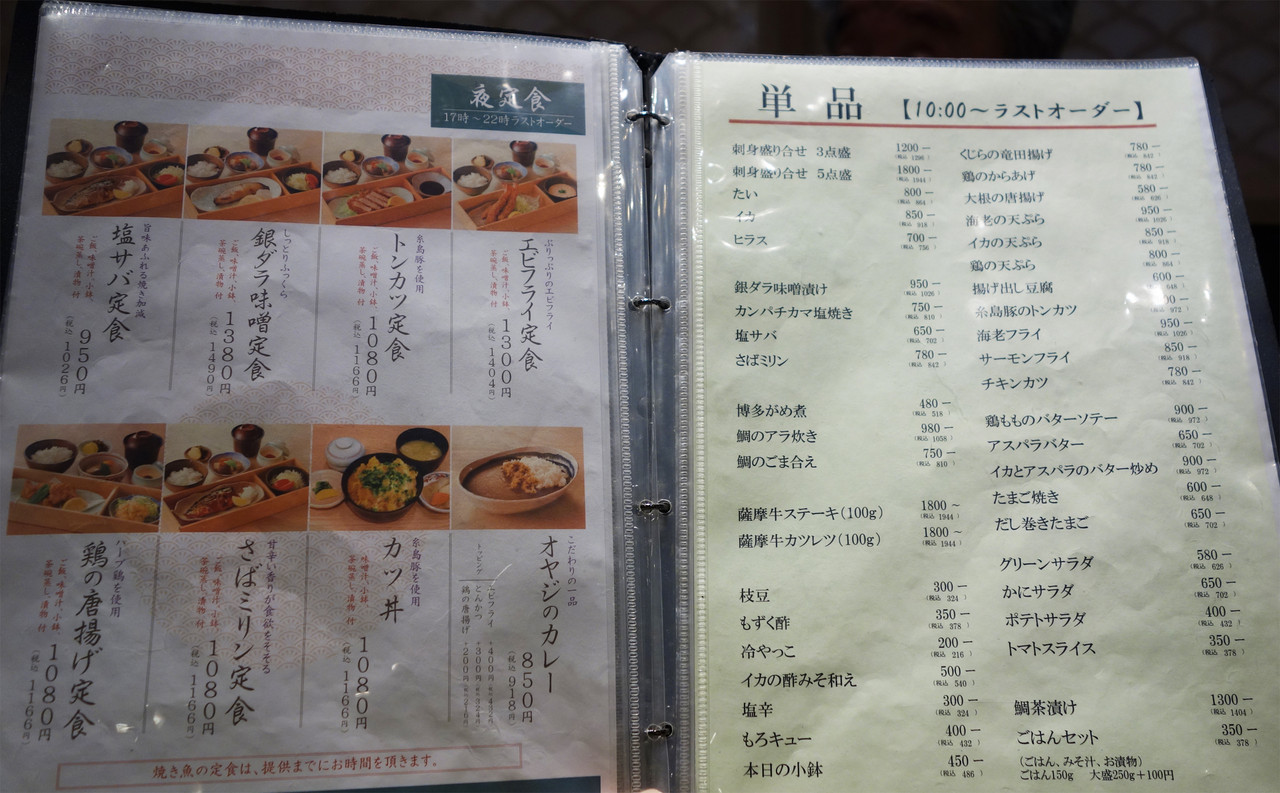 夜定食
17時～22時ラストオーダー
ぷりっぷりのエビフライ
エビフライ定食
ご飯、味噌汁、小鉢、
茶碗蒸し、漬物 付
1300円
(税込 1404円)
糸島豚を使用
トンカツ定食
ご飯、味噌汁、小鉢、
茶碗蒸し、漬物 付
1080円
(税込 1166円)
しっとりふっくら
銀ダラ味噌定食
ご飯、味噌汁、小鉢、
茶碗蒸し、漬物 付
1380円
(税込 1490円)
旨味あふれる焼き加減
塩サバ定食
ご飯、味噌汁、小鉢、
茶碗蒸し、漬物 付
950円
(税込 1026円)
こだわりの一品
オヤジのカレー
850円
(税込 918円)
トッピング
エビフライ +400円(税込432円)
とんかつ +300円(税込324円)
鶏の唐揚げ +200円(税込216円)
糸島豚を使用
カツ丼
味噌汁、小鉢、
茶碗蒸し、漬物 付
1080円
(税込 1166円)
甘辛い香りが食欲をそそる
さばミリン定食
ご飯、味噌汁、小鉢、
茶碗蒸し、漬物 付
1080円
(税込 1166円)
ハーブ鶏を使用
鶏の唐揚げ定食
ご飯、味噌汁、小鉢、
茶碗蒸し、漬物 付
1080円
(税込 1166円)
焼き魚の定食は、提供までにお時間を頂きます。
単品 【10:00～ラストオーダー】
刺身盛り合せ 3点盛 1200－
(税込 1296 )
刺身盛り合せ 5点盛 1800－
(税込 1944 )
たい 800－
(税込 864 )
イカ 850－
(税込 918 )
ヒラス 700－
(税込 756 )
銀ダラ味噌漬け 950－
(税込 1026 )
カンパチカマ塩焼き 750－
(税込 810 )
塩サバ 650－
(税込 702 )
さばミリン 780－
(税込 842 )
博多がめ煮 480－
(税込 518 )
鯛のアラ炊き 980－
(税込 1058 )
鯛のごま合え 750－
(税込 810 )
薩摩牛ステーキ(100g) 1800～
(税込 1944 )
薩摩牛カツレツ(100g) 1800～
(税込 1944 )
枝豆 300－
(税込 324 )
もずく酢 350－
(税込 378 )
冷やっこ 200－
(税込 216 )
イカの酢みそ和え 500－
(税込 540 )
塩辛 300－
(税込 324 )
もろキュー 400－
(税込 432 )
本日の小鉢 450－
(税込 486 )
くじらの竜田揚げ 780－
(税込 842 )
鶏のからあげ 780－
(税込 842 )
大根の唐揚げ 580－
(税込 626 )
海老の天ぷら 950－
(税込 1026 )
イカの天ぷら 850－
(税込 918 )
鶏の天ぷら 800－
(税込 864 )
揚げ出し豆腐 600－
648 )
糸島豚のトンカツ 00－
(税込 972 )
海老フライ 950－
(税込 1026 )
サーモンフライ 850－
(税込 918 )
チキンカツ 780－
(税込 842 )
鶏もものバターソテー 900－
(税込 972 )
アスパラバター 650－
(税込 702 )
イカとアスパラのバター炒め 900－
(税込 972 )
たまご焼き 600－
(税込 648 )
だし巻きたまご 650－
(税込 702 )
グリーンサラダ 580－
(税込 626 )
かにサラダ 650－
(税込 702 )
ポテトサラダ 400－
(税込 432 )
トマトスライス 350－
(税込 378 )
鯛茶漬け 1300－
(税込 1404 )
ごはんセット 350－
(税込 378 )
(ごはん、みそ汁、お漬物)
ごはん150g 大盛250g＋100円